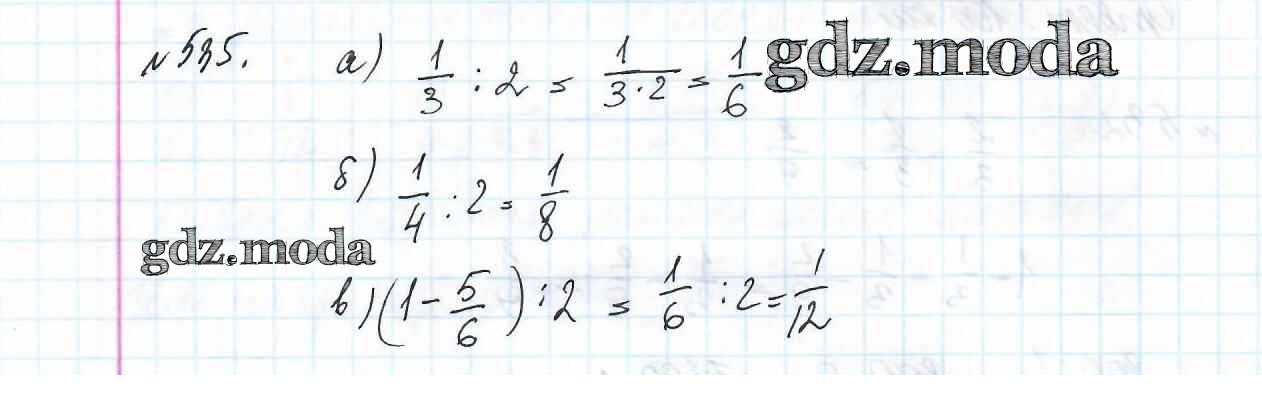 №535. а) 1/3 : 2 = 1/(3·2) = 1/6 gdz.moda
б) 1/4 : 2 = 1/8
gdz.moda
в) (1 - 5/6) : 2 = 1/6 : 2 = 1/12